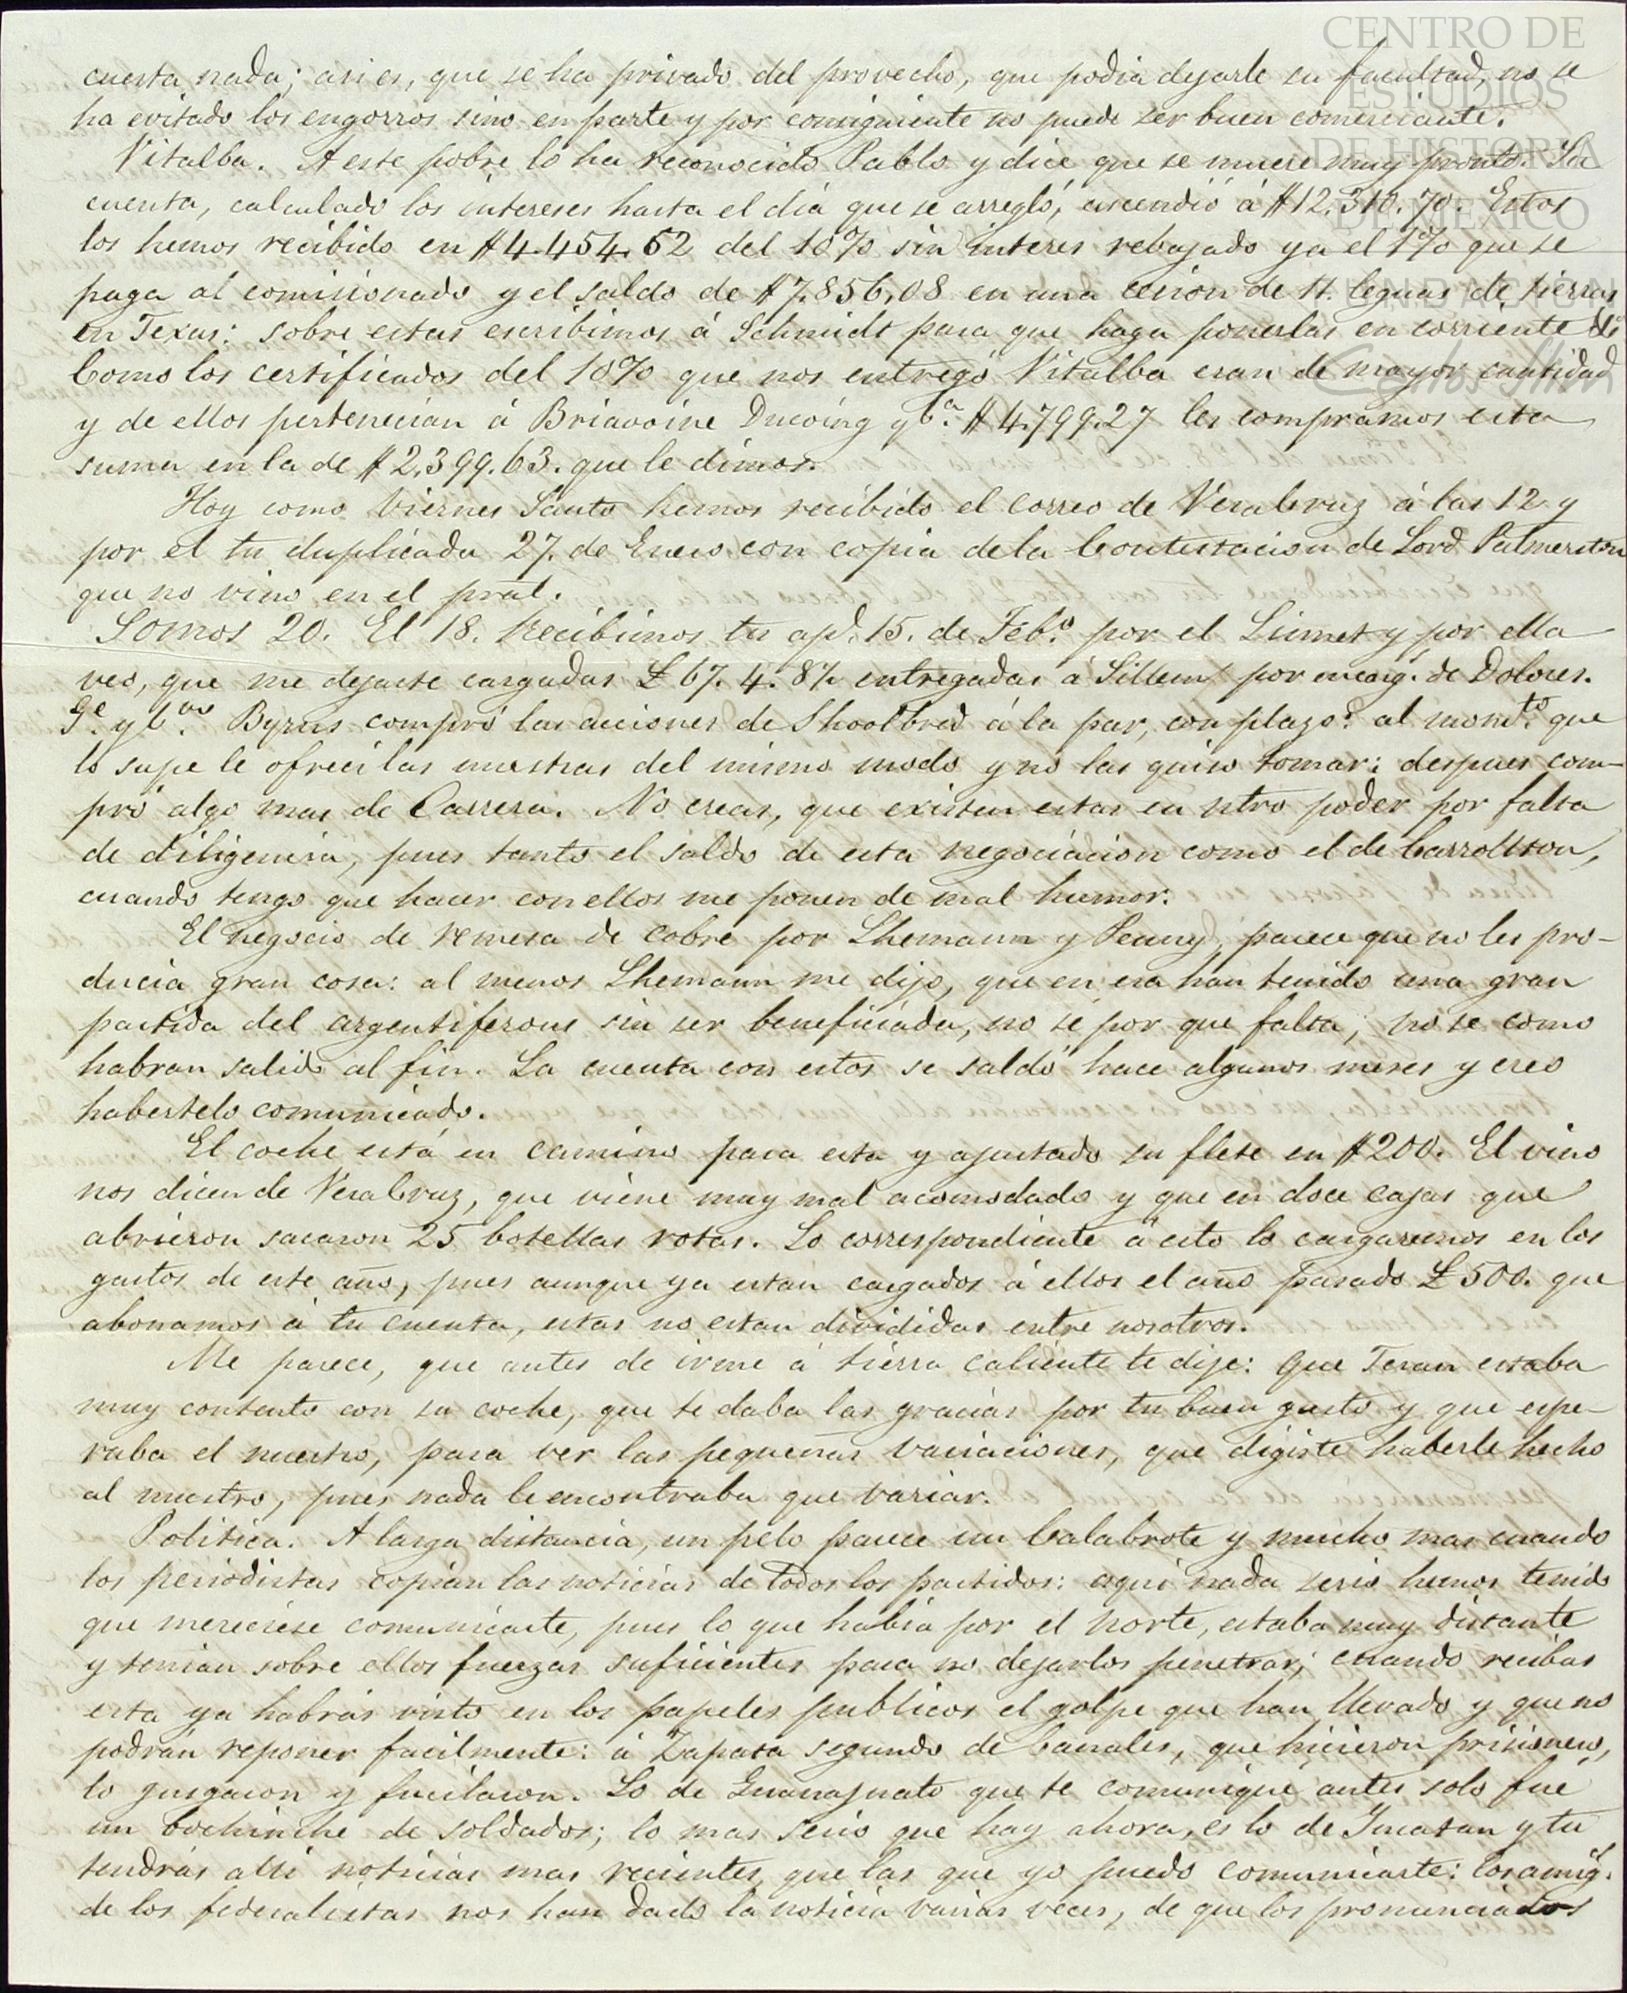 CENTRO DE
ESTUDIOS
DE HISTORIA
DE MEXICO
FUNDACION
Carlos Slim
cuesta nada; asi es, que se ha privado del provecho, que podia dejarle su facultad, no se
ha evitado los engorros sino en parte y por consiguiente no puede ser buen comerciante.
Vitalba. A este pobre lo ha reconocido Pablo y dice que se muere muy pronto. Su
cuenta, calculado los intereses hasta el dia que se arregló, ascendió á $12.310.70. Estos
los hemos recibido en $4.454.62 del 10% sin interes rebajado ya el 1% que se
paga al comisionado y el saldo de $7.856,08 en una cesion de 11. leguas de tierras
en Texas: sobre estas escribimos á Schmidt para que haga ponerlas en corriente &a
Como los certificados del 10% que nos entregó Vitalba eran de mayor cantidad
y de ellos pertenecian á Briavoine Ducoing y Ca. $4.799.27 les compramos esta
suma en la de $2.399.63. que le dimos.
Hoy como Viernes Santo hemos recibido el correo de VeraCruz á las 12 y
por el tu duplicada 27. de Enero con copia de la Contestacion de Lord Palmerston
que no vino en el pral.
Somos 20. El 18. Recibimos tu apd. 15. de Febo. por el Linnet y por ella
veo, que me dejaste cargadas £67.4.8½ entregadas á Sillem por encarg. de Dolores.
Ge. y Cas. Byrns compró las acciones de Shoolbred á la par, con plazo: al momto. que
lo supe le ofreci las nuestras del mismo modo y no las quiso tomar: despues com-
pró algo mas de Carrera. No creas, que existen estas en ntro poder por falta
de diligencia, pues tanto el saldo de esta negociacion como el de Carrollton,
cuando tengo que hacer con ellos me ponen de mal humor.
El negocio de remesa de cobre por Lhemann y Penny, parece que no les pro-
ducia gran cosa: al menos Lhemann me dijo, que en esa han tenido una gran
partida del argentiferoue sin ser beneficiada, no sé por que falta; no se como
habran salido al fin. La cuenta con estos se saldó hace algunos meses y creo
habertelo comunicado.
El coche está en camino para esta y ajustado su flete en $200. El vino
nos dicen de VeraCruz, que viene muy mal acomodado y que en doce cajas que
abrieron sacaron 25 botellas rotas. Lo correspondiente á esto lo cargaremos en los
gastos de este año, pues aunque ya estan cargados á ellos el año pasado £500. que
abonamos á tu cuenta, estas no estan divididas entre nosotros.
Me parece, que antes de irme á tierra caliente te dije: que Teran estaba
muy contento con su coche, que te daba las gracias por tu buen gusto y que espe-
raba el nuestro, para ver las pequeñas variaciones, que digiste haberle hecho
al nuestro, pues nada le encontraba que variar.
Politica. A larga distancia, un pelo parece un Calabrote y mucho mas cuando
los periodistas copian las noticias de todos los partidos: aqui nada serio hemos tenido
que mereciese comunicarte, pues lo que habia por el norte, estaba muy distante
y tenian sobre ellos fuerzas suficientes para no dejarlos penetrar; cuando recibas
esta ya habrás visto en los papeles publicos el golpe que han llevado y que no
podrán reponer facilmente: á Zapata segundo de Canales, que hicieron prisionero,
lo jusgaron y fucilaron. Lo de Guanajuato que te comuniqué antes solo fué
un bochinche de soldados; lo mas serio que hay ahora, es lo de Yucatan y tu
tendrás alli noticias mas recientes que las que yo puedo comunicarte: los amig.
de los federalistas nos han dado la noticia varias veces, de que los pronunciados